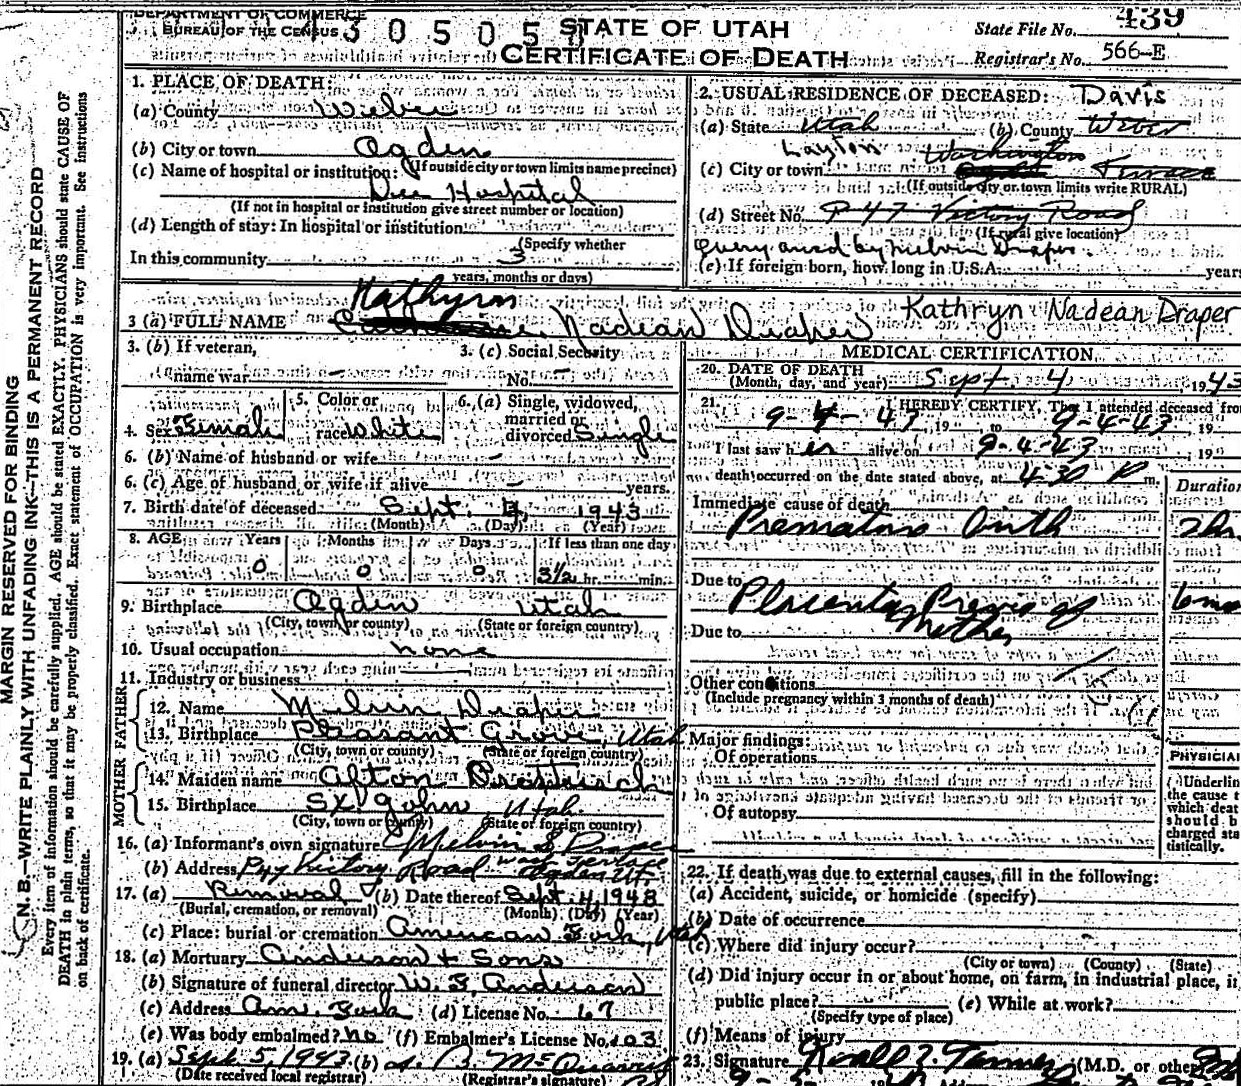 DEPARTMENT OF COMMERCE
BUREAU OF THE CENSUS
STATE OF UTAH
CERTIFICATE OF DEATH
State File No. 439
Registrar's No. 566-E
MARGIN RESERVED FOR BINDING
N. B.—WRITE PLAINLY WITH UNFADING INK—THIS IS A PERMANENT RECORD
Every item of information should be carefully supplied. AGE should be stated EXACTLY. PHYSICIANS should state CAUSE OF
DEATH in plain terms, so that it may be properly classified. Exact statement of OCCUPATION is very important. See instructions
on back of certificate.
1. PLACE OF DEATH:
(a) County Weber
(b) City or town Ogden
(If outside city or town limits name precinct)
(c) Name of hospital or institution:
Dee Hospital
(If not in hospital or institution give street number or location)
(d) Length of stay: In hospital or institution
(Specify whether
In this community 3
years, months or days)
2. USUAL RESIDENCE OF DECEASED: Davis
(a) State Utah (b) County Weber
Layton Washington
(c) City or town Terrace
(If outside city or town limits write RURAL)
(d) Street No. P-47 Victory Road
(If rural give location)
query ansd by Melvin Draper.
(e) If foreign born, how long in U.S.A. years
Kathryn
3 (a) FULL NAME Nadean Draper Kathryn Nadean Draper
3. (b) If veteran,
name war
3. (c) Social Security
No.
4. Sex Female
5. Color or
race White
6. (a) Single, widowed,
married or
divorced Single
6. (b) Name of husband or wife
6. (c) Age of husband or wife if alive years.
7. Birth date of deceased Sept. 4 1943
(Month) (Day) (Year)
8. AGE Years Months Days If less than one day
0 0 0 3½ hr. min.
9. Birthplace Ogden Utah
(City, town or county) (State or foreign country)
10. Usual occupation none
11. Industry or business
FATHER
12. Name Melvin Draper
13. Birthplace Pleasant Grove, Utah
(City, town or county) (State or foreign country)
MOTHER
14. Maiden name Afton
15. Birthplace St. John Utah
(City, town or county) (State or foreign country)
16. (a) Informant's own signature Melvin S Draper
(b) Address P47 Victory Road Wash Terrace
Ogden Ut
17. (a) Removal (b) Date thereof Sept. 4, 1943
(Burial, cremation, or removal) (Month) (Day) (Year)
(c) Place: burial or cremation American Fork, Utah
18. (a) Mortuary Anderson & Sons
(b) Signature of funeral director W. E. Anderson
(c) Address Am. Fork (d) License No. 67
(e) Was body embalmed? no (f) Embalmer's License No. 103
19. (a) Sept 5, 1943 (b)
(Date received local registrar) (Registrar's signature)
MEDICAL CERTIFICATION
20. DATE OF DEATH
(Month, day, and year) Sept 4 1943
21. I HEREBY CERTIFY, That I attended deceased from
9-4-43, 19 to 9-4-43, 19
I last saw her alive on 9-4-43, 19
death occurred on the date stated above, at 4:30 P m.
Duration
Immediate cause of death
Premature birth 2 hrs.
Due to
Placenta Previa of
Mother 6 mo
Due to
Other conditions
(Include pregnancy within 3 months of death)
Major findings:
Of operations
Of autopsy
PHYSICIAN
Underline
the cause t
which deat
should b
charged sta
tistically.
22. If death was due to external causes, fill in the following:
(a) Accident, suicide, or homicide (specify)
(b) Date of occurrence
(c) Where did injury occur?
(City or town) (County) (State)
(d) Did injury occur in or about home, on farm, in industrial place, i
public place? (e) While at work?
(Specify type of place)
(f) Means of injury
23. Signature (M.D. or other)